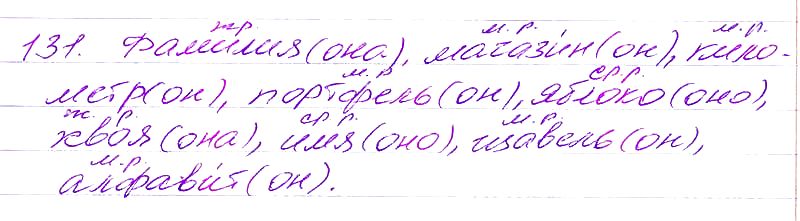 ж.р. м.р. м.р.
131. Фамилия (она), магазин (он), кило-
м.р. ср.р.
метр (он), портфель (он), яблоко (оно),
ж.р. ср.р. м.р.
хвоя (она), имя (оно), щавель (он),
м.р.
алфавит (он).